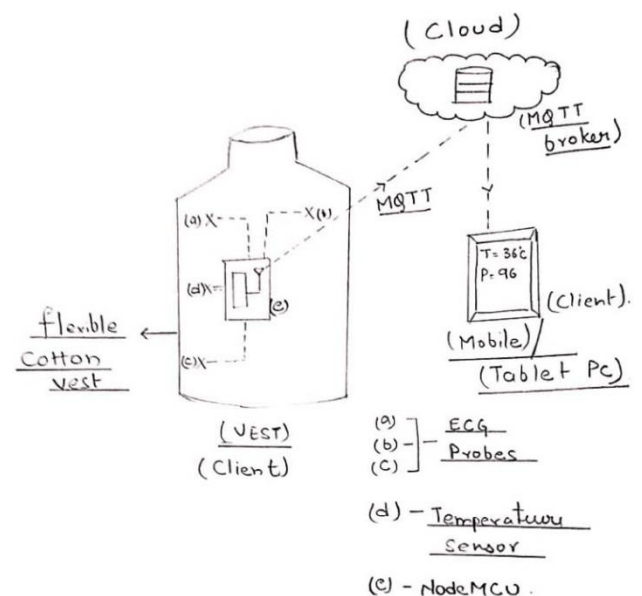 (Cloud)
(MQTT
broker)
MQTT
(a) X
X (b)
(d)X
(e)
(c)X
T = 36°C
P = 96
(Client).
(Mobile)/
(Tablet Pc)
flexible
Cotton
vest
(VEST)
(Client)
(a)
(b)
(c)
ECG
Probes
(d) - Temperature
Sensor
(e) - NodeMCU.